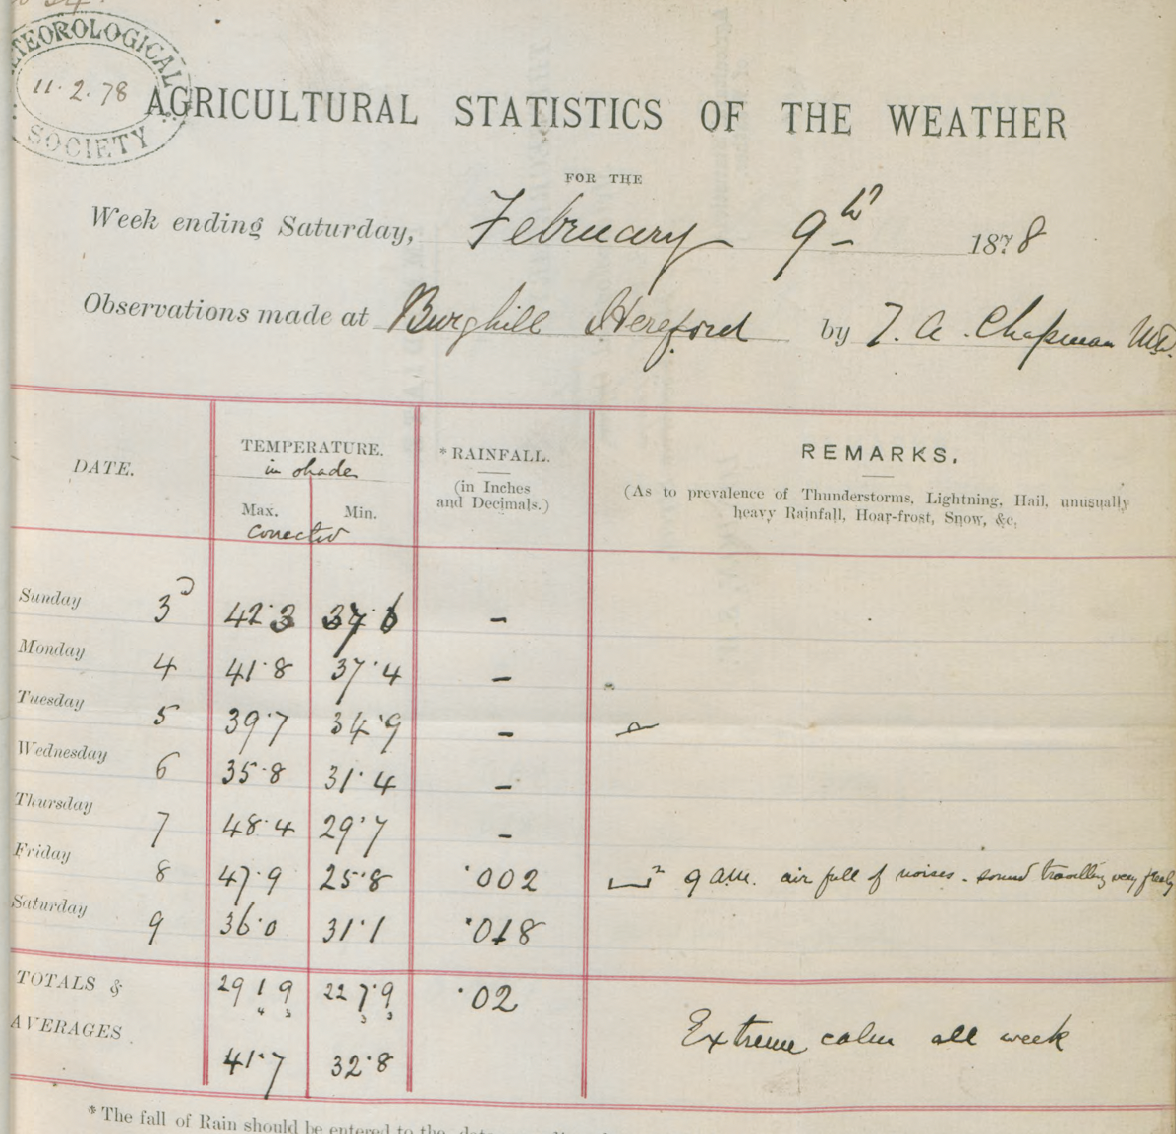 METEOROLOGICAL
11.2.78
SOCIETY
AGRICULTURAL STATISTICS OF THE WEATHER
FOR THE
Week ending Saturday, February 9th 1878
Observations made at Burghill Hereford by T. A. Chapman M.D.
DATE. TEMPERATURE. *RAINFALL. REMARKS.
in shade
(in Inches and Decimals.) (As to prevalence of Thunderstorms, Lightning, Hail, unusually
Max. Min. heavy Rainfall, Hoar-frost, Snow, &c.
Corrected
Sunday 3 42.3 37.6 –
Monday 4 41.8 37.4 –
Tuesday 5 39.7 34.9 –
Wednesday 6 35.8 31.4 –
Thursday 7 48.4 29.7 –
Friday 8 47.9 25.8 .002 ⌴² 9 a.m. air full of noises - sound travelling very freely
Saturday 9 36.0 31.1 .018
TOTALS & 291.9 227.9 .02
AVERAGES 41.7 32.8 Extreme calm all week
*The fall of Rain should be entered to the